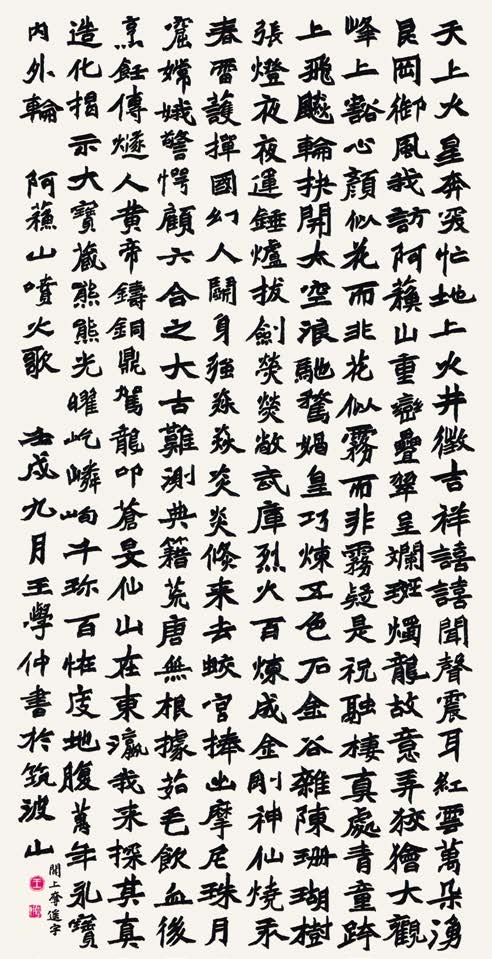 天上火星奔發忙地上火井徵吉祥譆譆聞聲震耳紅雲萬朵湧
昆岡御風我訪阿蘓山重巒疊翠呈斕斑燭龍故意弄狡獪大觀
峰上豁心顏似花而非花似霧而非霧疑是祝融棲真處青童跨
上飛飈輪抉開太空浪馳騖媧皇巧煉五色石金谷雜陳珊瑚樹
張燈夜夜運錘爐拔劍熒熒敞武庫烈火百煉成金剛神仙燒汞
春雷護撣國幻人鬭身強猋猋炎炎倏来去蛟宮捧出摩尼珠月
窟嫦娥警愕顧六合之大古難測典籍荒唐無根據茹毛飲血後
烹飪傳燧人黄帝鑄銅鼎駕龍叩蒼旻仙山在東瀛我来探其真
造化揭示大寶蔵熊熊光曜屹嶙峋千珍百怪庋地腹萬年永寶
内外輪 阿蘓山噴火歌 壬戌九月王學仲書於筑波山
上奪進字
王